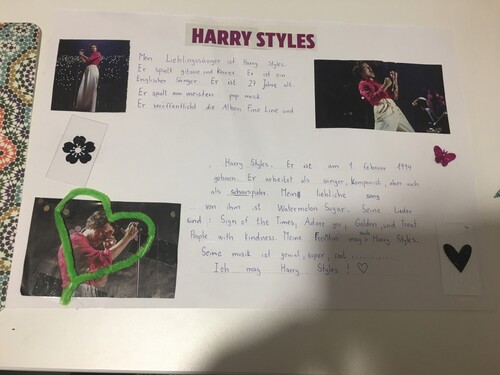 HARRY STYLES
Mein Lieblingssänger ist Harry Styles.
Er spielt gitarre und Klavier. Er ist ein
Englischer Sänger. Er ist 27 Jahre alt.
Er spielt am meisten pop musik.
Er veröffentlicht die Alben Fine Line und
. Harry Styles. Er ist am 1. februar 1994
geboren. Er arbeitet als sänger, Komponist, aber auch
als schauspieler. Meine liebliche song
von ihm ist Watermelon Sugar. Seine Lieder
sind : Sign of the Times, Adore you, Golden und Treat
People with kindness. Meine Familie auch mag Harry Styles.
Seine musik ist genial, super, cool ..........
Ich mag Harry Styles ! ♡